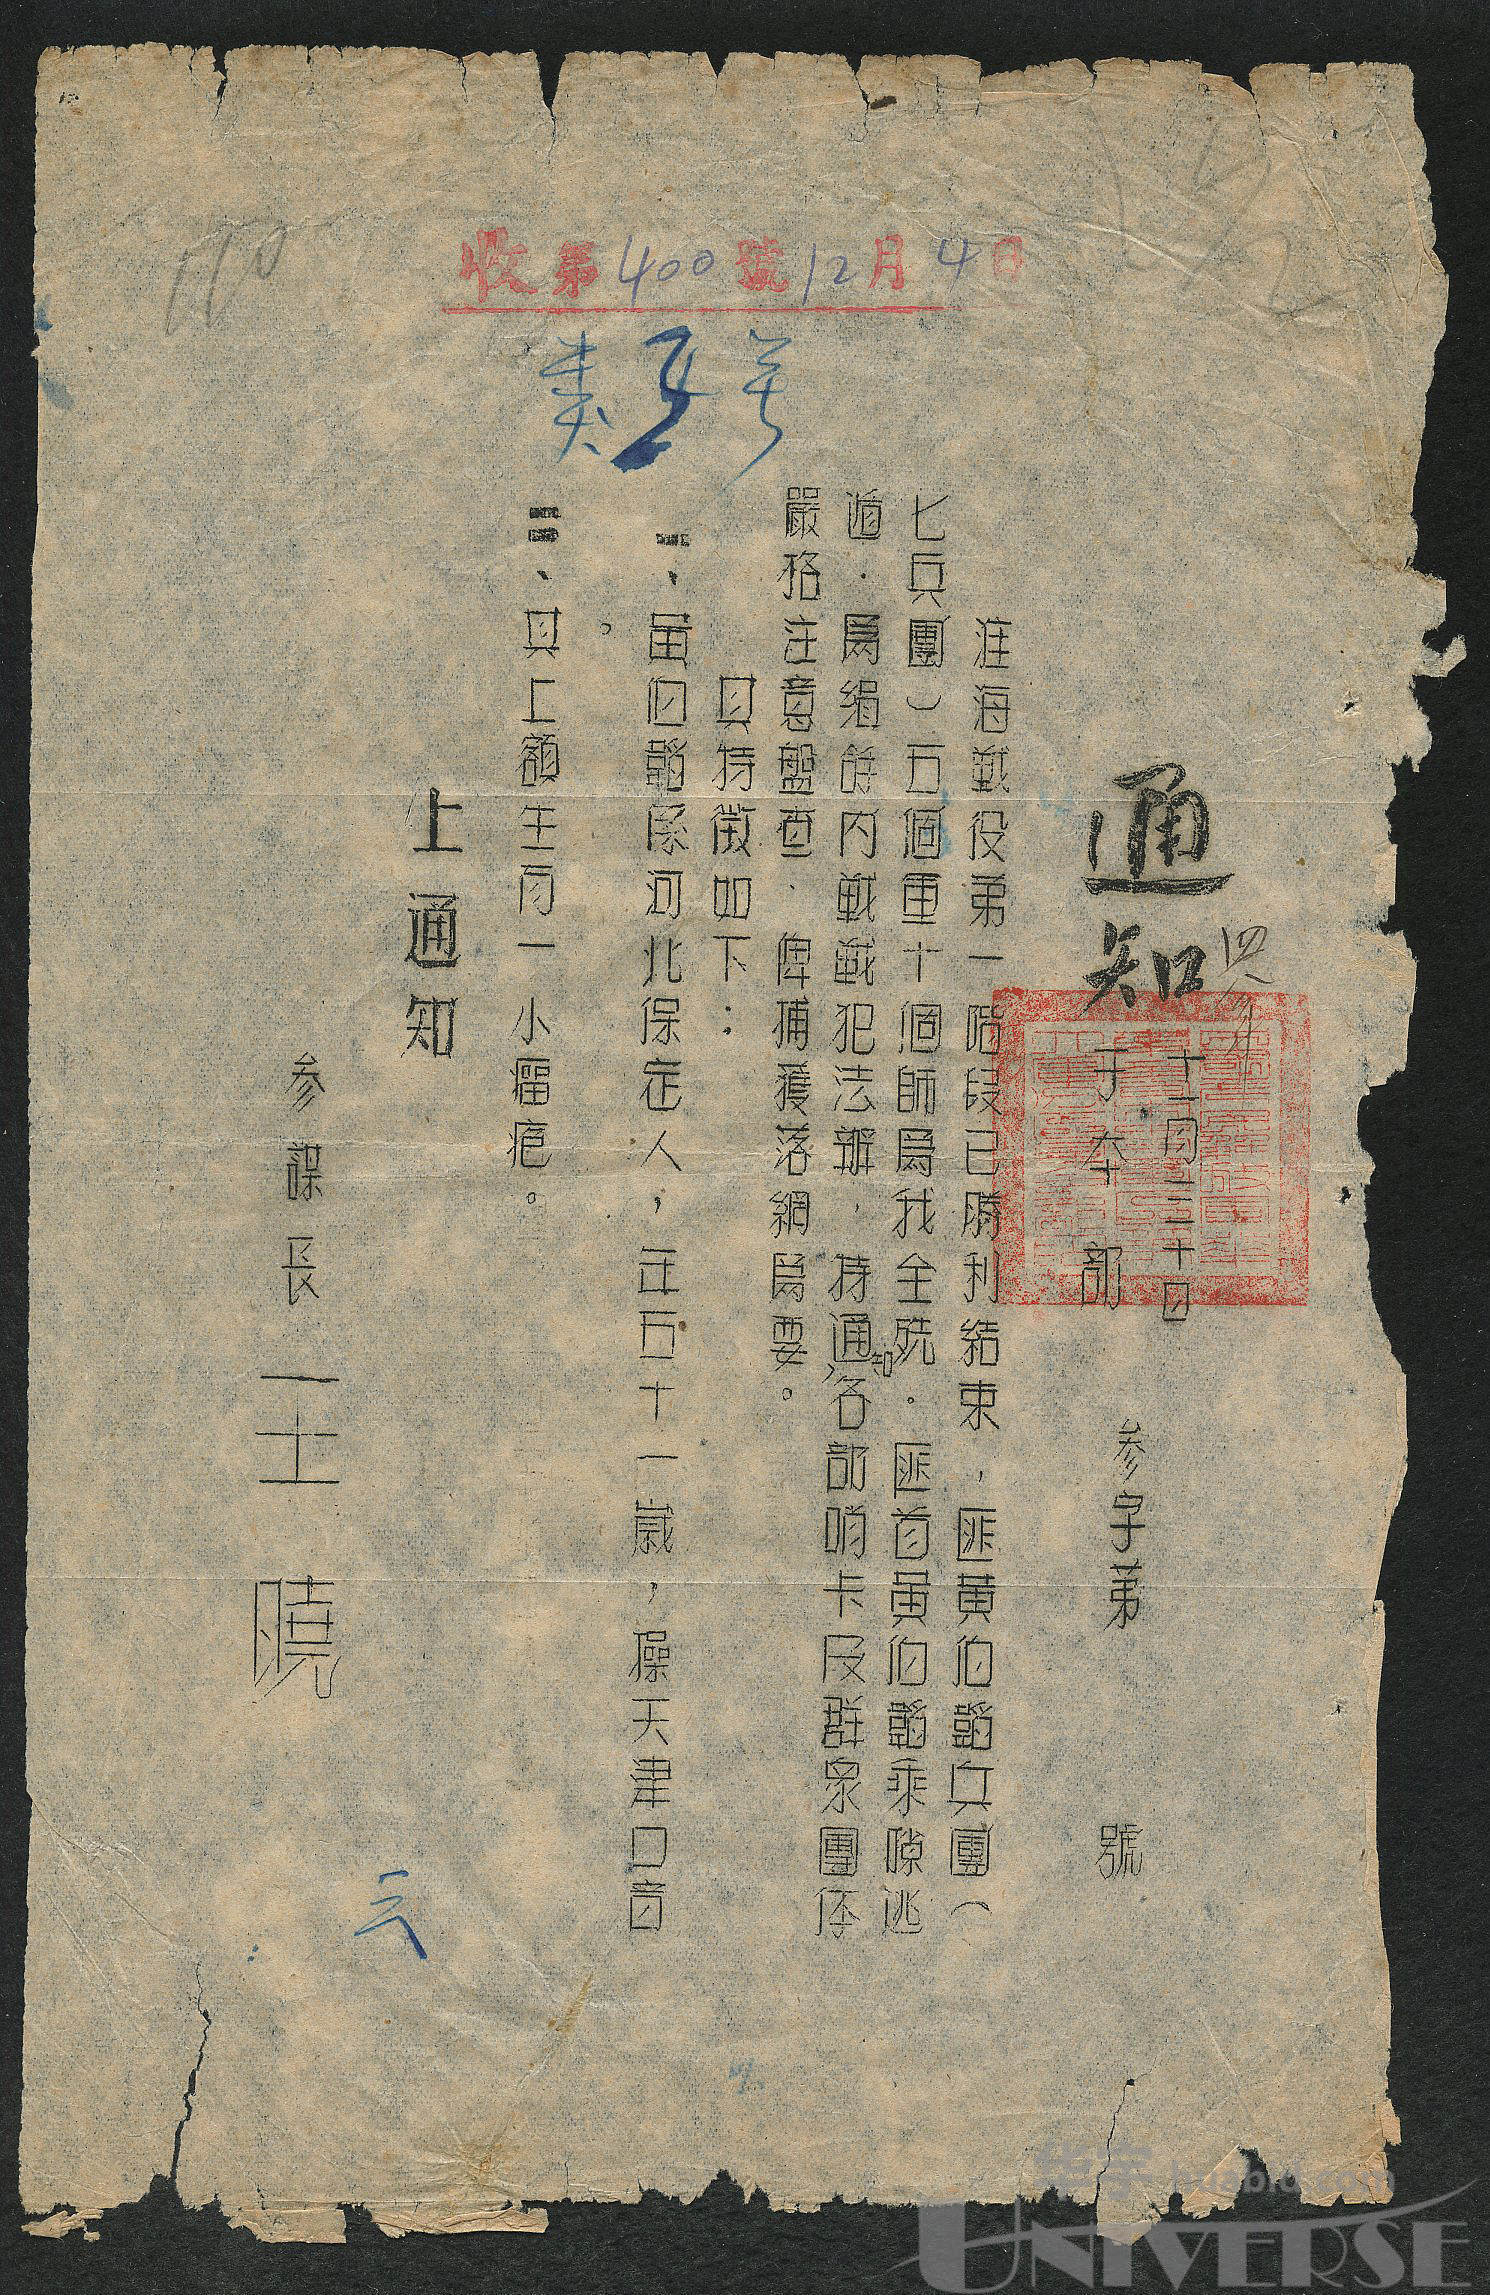 收第400號12月4日
110
通知
四
十一月三十日
于本部
參字第 號
淮海戰役第一階段已勝利結束，匪黃伯韜兵團（
七兵團）五個軍十個師爲我全殲。匪首黃伯韜乘隙逃
遁．爲緝馀内戰戰犯法辦．特通知各部哨卡及群衆團体
嚴格注意盤查．俾捕獲落網爲要。
其特徵如下：
一、黃伯韜係河北保定人，年五十一歲，操天津口音
。
二、其上額生有一小瘤疤。
上通知
参謀長 王 曉
云
华宇 huabid.com
UNIVERSE